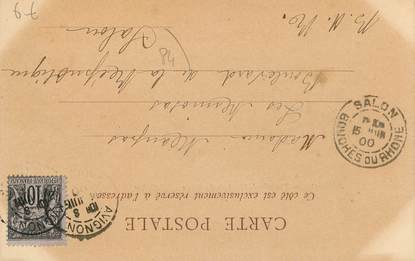 CARTE POSTALE
Ce côté est exclusivement réservé à l'adresse
Madame
Les Mimosas
Boulevard de la République
48
Salon
B. d. R.
79
10
AVIGNON
8
SALON
15 JUIN
00
BOUCHES DU RHÔNE